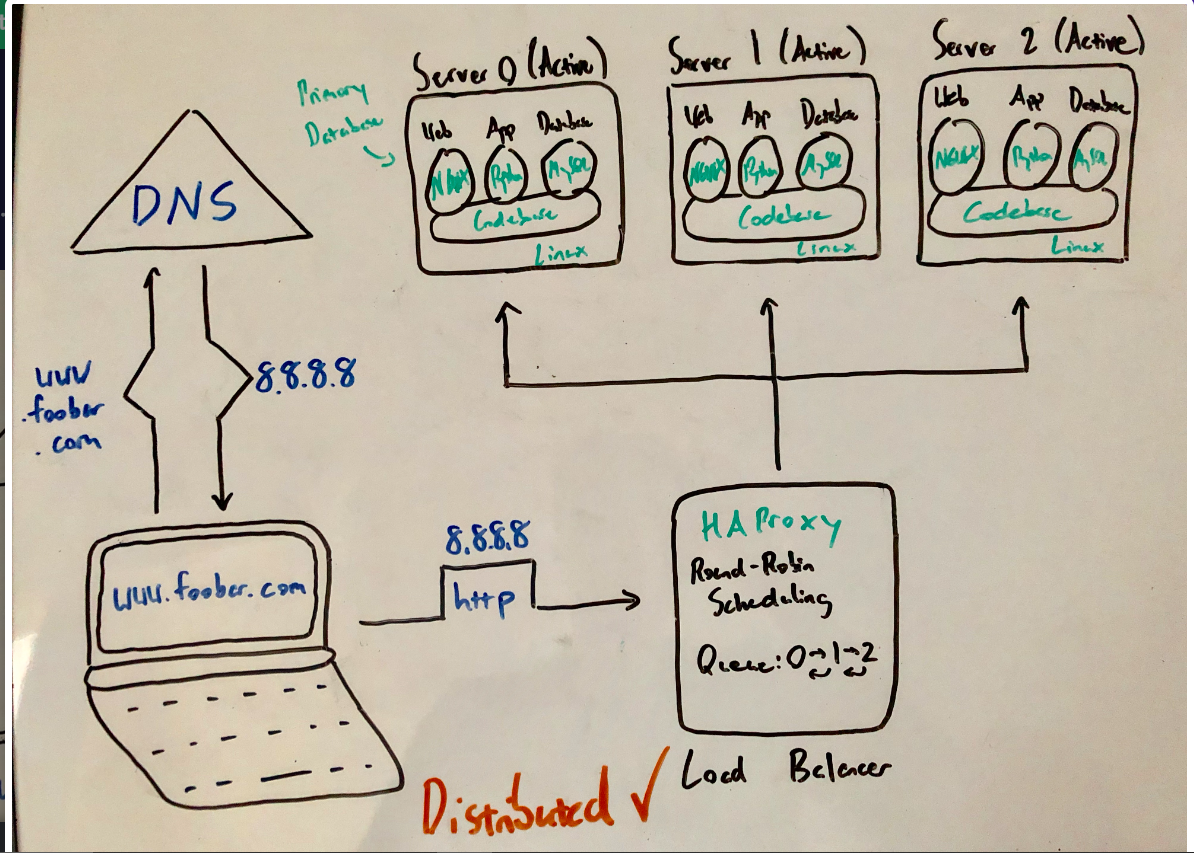 Server 0 (Active)
Server 1 (Active)
Server 2 (Active)
Primary
Database
Web App Database
NGINX Python MySQL
Codebase
Linux
Web App Database
NGINX Python MySQL
Codebase
Linux
Web App Database
NGINX Python MySQL
Codebase
Linux
DNS
www
.foobar
.com
8.8.8.8
www.foobar.com
8.8.8.8
http
HAProxy
Round-Robin
Scheduling
Queue: 0→1→2
Load Balancer
Distributed ✓